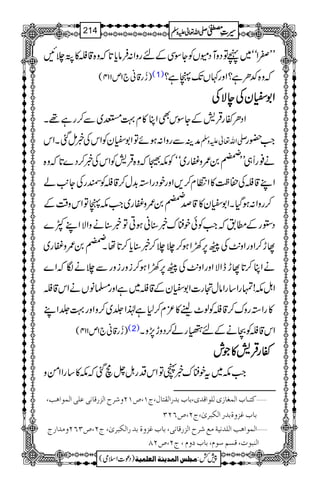 سیرتِ مصطفیٰ صلی اللہ تعالیٰ علیہ وسلم 214
’’صفراء‘‘ میں پہنچے تو دو آدمیوں کو جاسوسی کے لئے روانہ فرمایا تا کہ وہ قافلہ کا پتہ چلائیں
کہ وہ کدھر ہے؟ اور کہاں تک پہنچا ہے؟(1) (زُرقانی ج۱ ص۴۱۱)
ابو سفیان کی چالاکی
ادھر کفارِ قریش کے جاسوس بھی اپنا کام بہت مستعدی سے کر رہے تھے۔
جب حضور صلی اللہ تعالیٰ علیہ وسلم مدینہ سے روانہ ہوئے تو ابو سفیان کو اس کی خبر مل گئی۔ اس
نے فوراً ہی ’’ضمضم بن عمرو غفاری‘‘ کو مکہ بھیجا کہ وہ قریش کو اس کی خبر کر دے تا کہ وہ
اپنے قافلہ کی حفاظت کا انتظام کریں اور خود راستہ بدل کر قافلہ کو سمندر کی جانب لے
کر روانہ ہو گیا۔ ابو سفیان کا قاصد ضمضم بن عمرو غفاری جب مکہ پہنچا تو اس وقت کے
دستور کے مطابق کہ جب کوئی خوفناک خبر سنانی ہوتی تو خبر سنانے والا اپنے کپڑے
پھاڑ کر اور اونٹ کی پیٹھ پر کھڑا ہو کر چلا چلا کر خبر سنایا کرتا تھا۔ ضمضم بن عمرو غفاری
نے اپنا کرتا پھاڑ ڈالا اور اونٹ کی پیٹھ پر کھڑا ہو کر زور زور سے چلانے لگا کہ اے
اہل مکہ! تمہارا سارا مال تجارت ابو سفیان کے قافلہ میں ہے اور مسلمانوں نے اس قافلہ
کا راستہ روک کر قافلہ کو لوٹ لینے کا عزم کر لیا ہے لہٰذا جلدی کرو اور بہت جلد اپنے
اس قافلہ کو بچانے کے لئے ہتھیار لے کر دوڑ پڑو۔(2) (زُرقانی ج۱ ص۴۱۱)
کفارِ قریش کا جوش
جب مکہ میں یہ خوفناک خبر پہنچی تو اس قدر ہل چل مچ گئی کہ مکہ کا سارا امن و
......کتاب المغازی للواقدی، باب بدر القتال، ج۱، ص۲۱ وشرح الزرقانی علی المواھب،
باب غزوۃ بدر الکبریٰ، ج۲، ص۳۲۶
......المواھب اللدنیۃ مع شرح الزرقانی، باب غزوۃ بدر الکبریٰ، ج۲، ص۲۶۳ ومدارج
النبوت، قسم سوم، باب دوم، ج۲، ص۸۲
پیش کش: مجلس المدینۃ العلمیۃ (دعوتِ اسلامی)